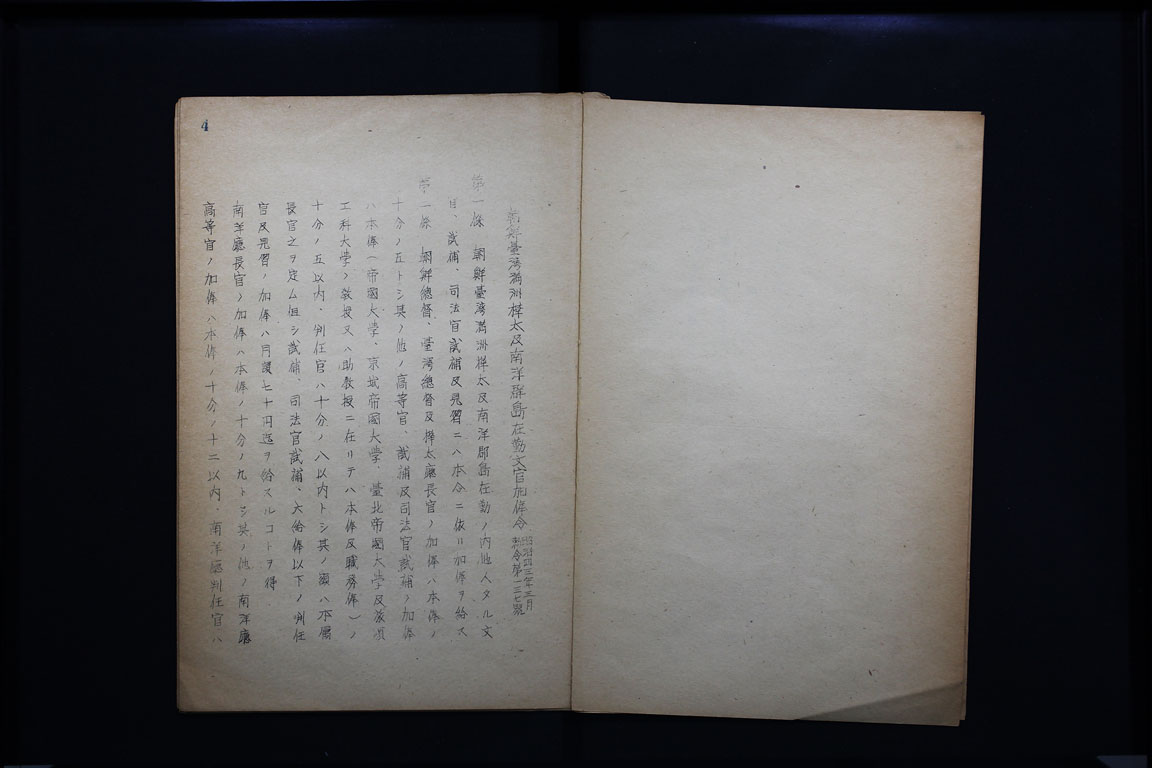 4
朝鮮臺湾満洲樺太及南洋群島在勤文官加俸令
勅令第一三七號
第一條 朝鮮臺湾満洲樺太及南洋郡島在勤ノ内地人タル文
官、試補、司法官試補及見習ニハ本令ニ依リ加俸ヲ給ス
第一條 朝鮮總督、臺湾總督及樺太廳長官ノ加俸ハ本俸ノ
十分ノ五トシ其ノ他ノ高等官、試補及司法官試補ノ加俸
ハ本俸(帝國大学、京城帝國大学、臺北帝國大学及旅順
工科大学ノ教授又ハ助教授ニ在リテハ本俸及職務俸)ノ
十分ノ五以内、判任官ハ十分ノ八以内トシ其ノ額ハ本屬
長官之ヲ定ム但シ試補、司法官試補、六給俸以下ノ判任
官及見習ノ加俸ハ月額七十円迄ヲ給スルコトヲ得
南洋廳長官ノ加俸ハ本俸ノ十分ノ九トシ其ノ他ノ南洋廳
高等官ノ加俸ハ本俸ノ十分ノ十二以内、南洋廳判任官ハ